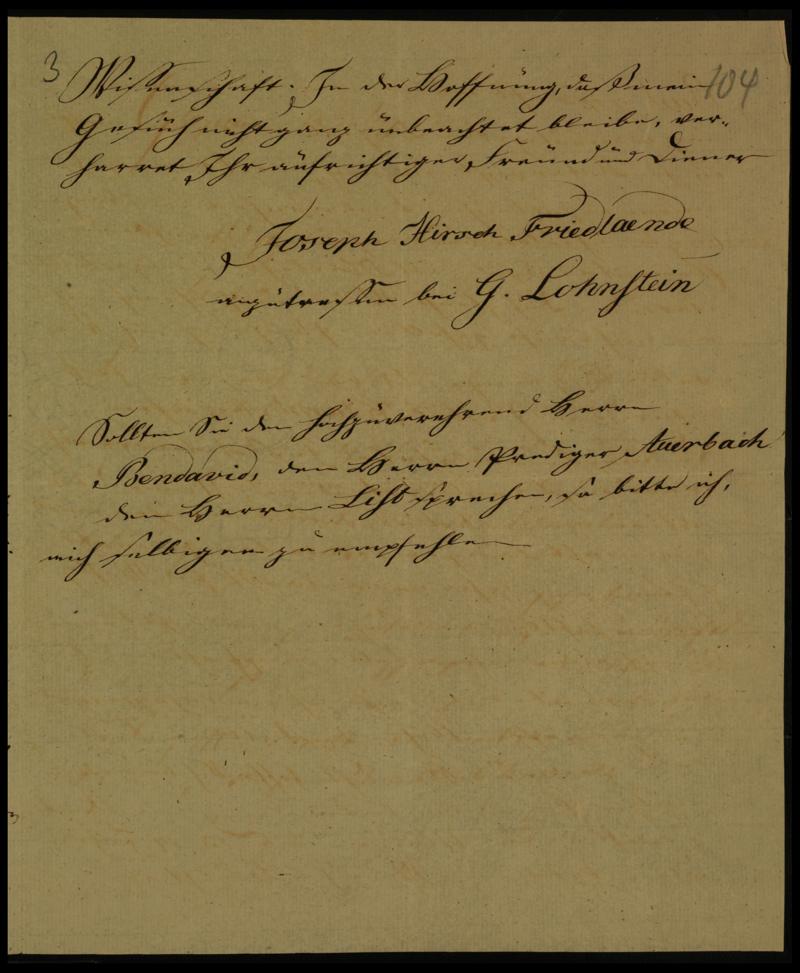 3 104
Wissenschaft. In der Hoffnung, daß mein
Gesuch nicht ganz unbeachtet bleibe, ver-
harret Ihr aufrichtiger Freund und Diener
Joseph Hirsch Friedlaender
anzutreffen bei G. Lohnstein
Sollten Sie den hochzuverehrend Herrn
Bendavid, den Herrn Prediger Auerbach
den Herrn List sprechen, so bitte ich,
mich selbigen zu empfehlen